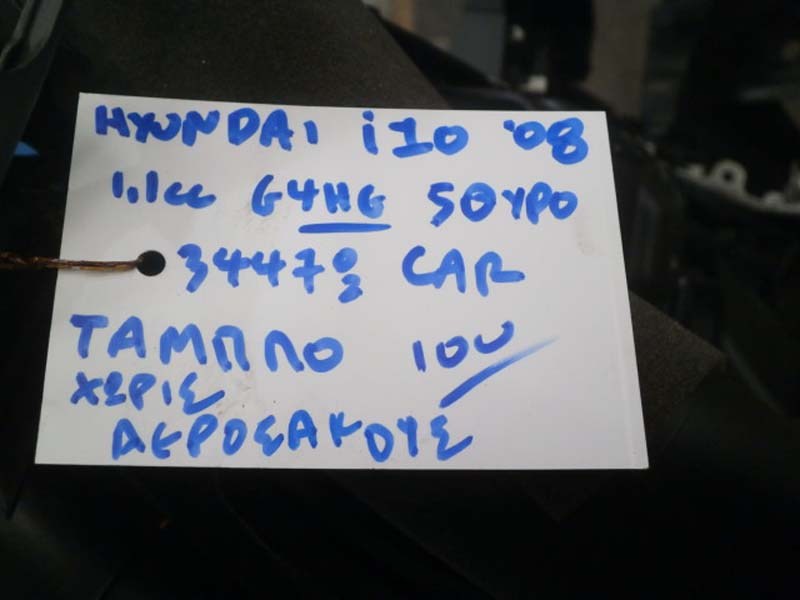 HYUNDAI i10 '08
1.1cc G4HG 5ΘΥΡΟ
34478 CAR
ΤΑΜΠΛΟ 100
ΧΩΡΙΣ
ΑΕΡΟΣΑΚΟΥΣ